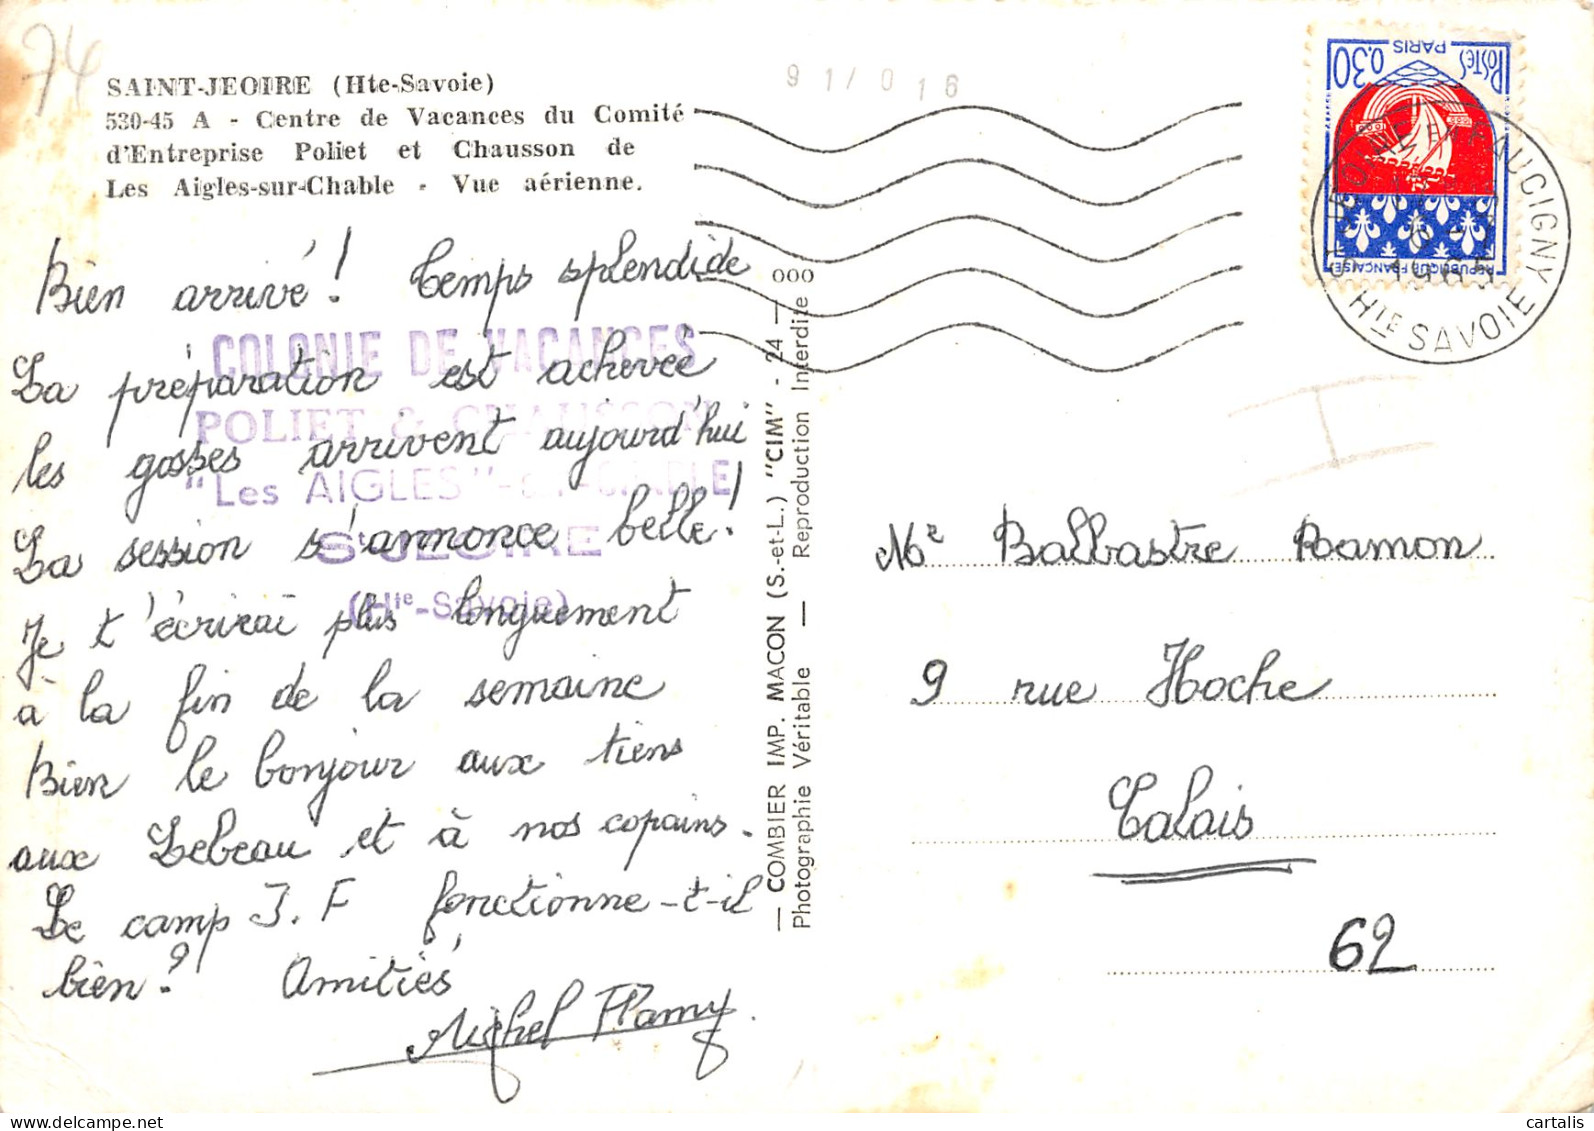 74
SAINT-JEOIRE (Hte-Savoie)
530-45 A - Centre de Vacances du Comité
d'Entreprise Poliet et Chausson de
Les Aigles-sur-Chable - Vue aérienne.
91/016
POSTES
0.30
PARIS
REPUBLIQUE FRANÇAISE
ST JEOIRE EN FAUCIGNY
HTE SAVOIE
1965
Bien arrivé! Temps splendide
La préparation est achevée
les gosses arrivent aujourd'hui
La session s'annonce belle!
Je t'écrirai plus longuement
à la fin de la semaine
Bien le bonjour aux tiens
aux Lebeau et à nos copains.
Le camp J.F fonctionne-t-il
bien? Amitiés
Michel Flamy
COLONIE DE VACANCES
POLIET & CHAUSSON
"Les AIGLES"
St JEOIRE
(Hte-Savoie)
— COMBIER IMP. MACON (S.-et-L.) "CIM" - 24 — 000
Photographie Véritable — Reproduction Interdite
Mr Balbastre Ramon
9 rue Hoche
Calais
62
cartalis
delcampe.net